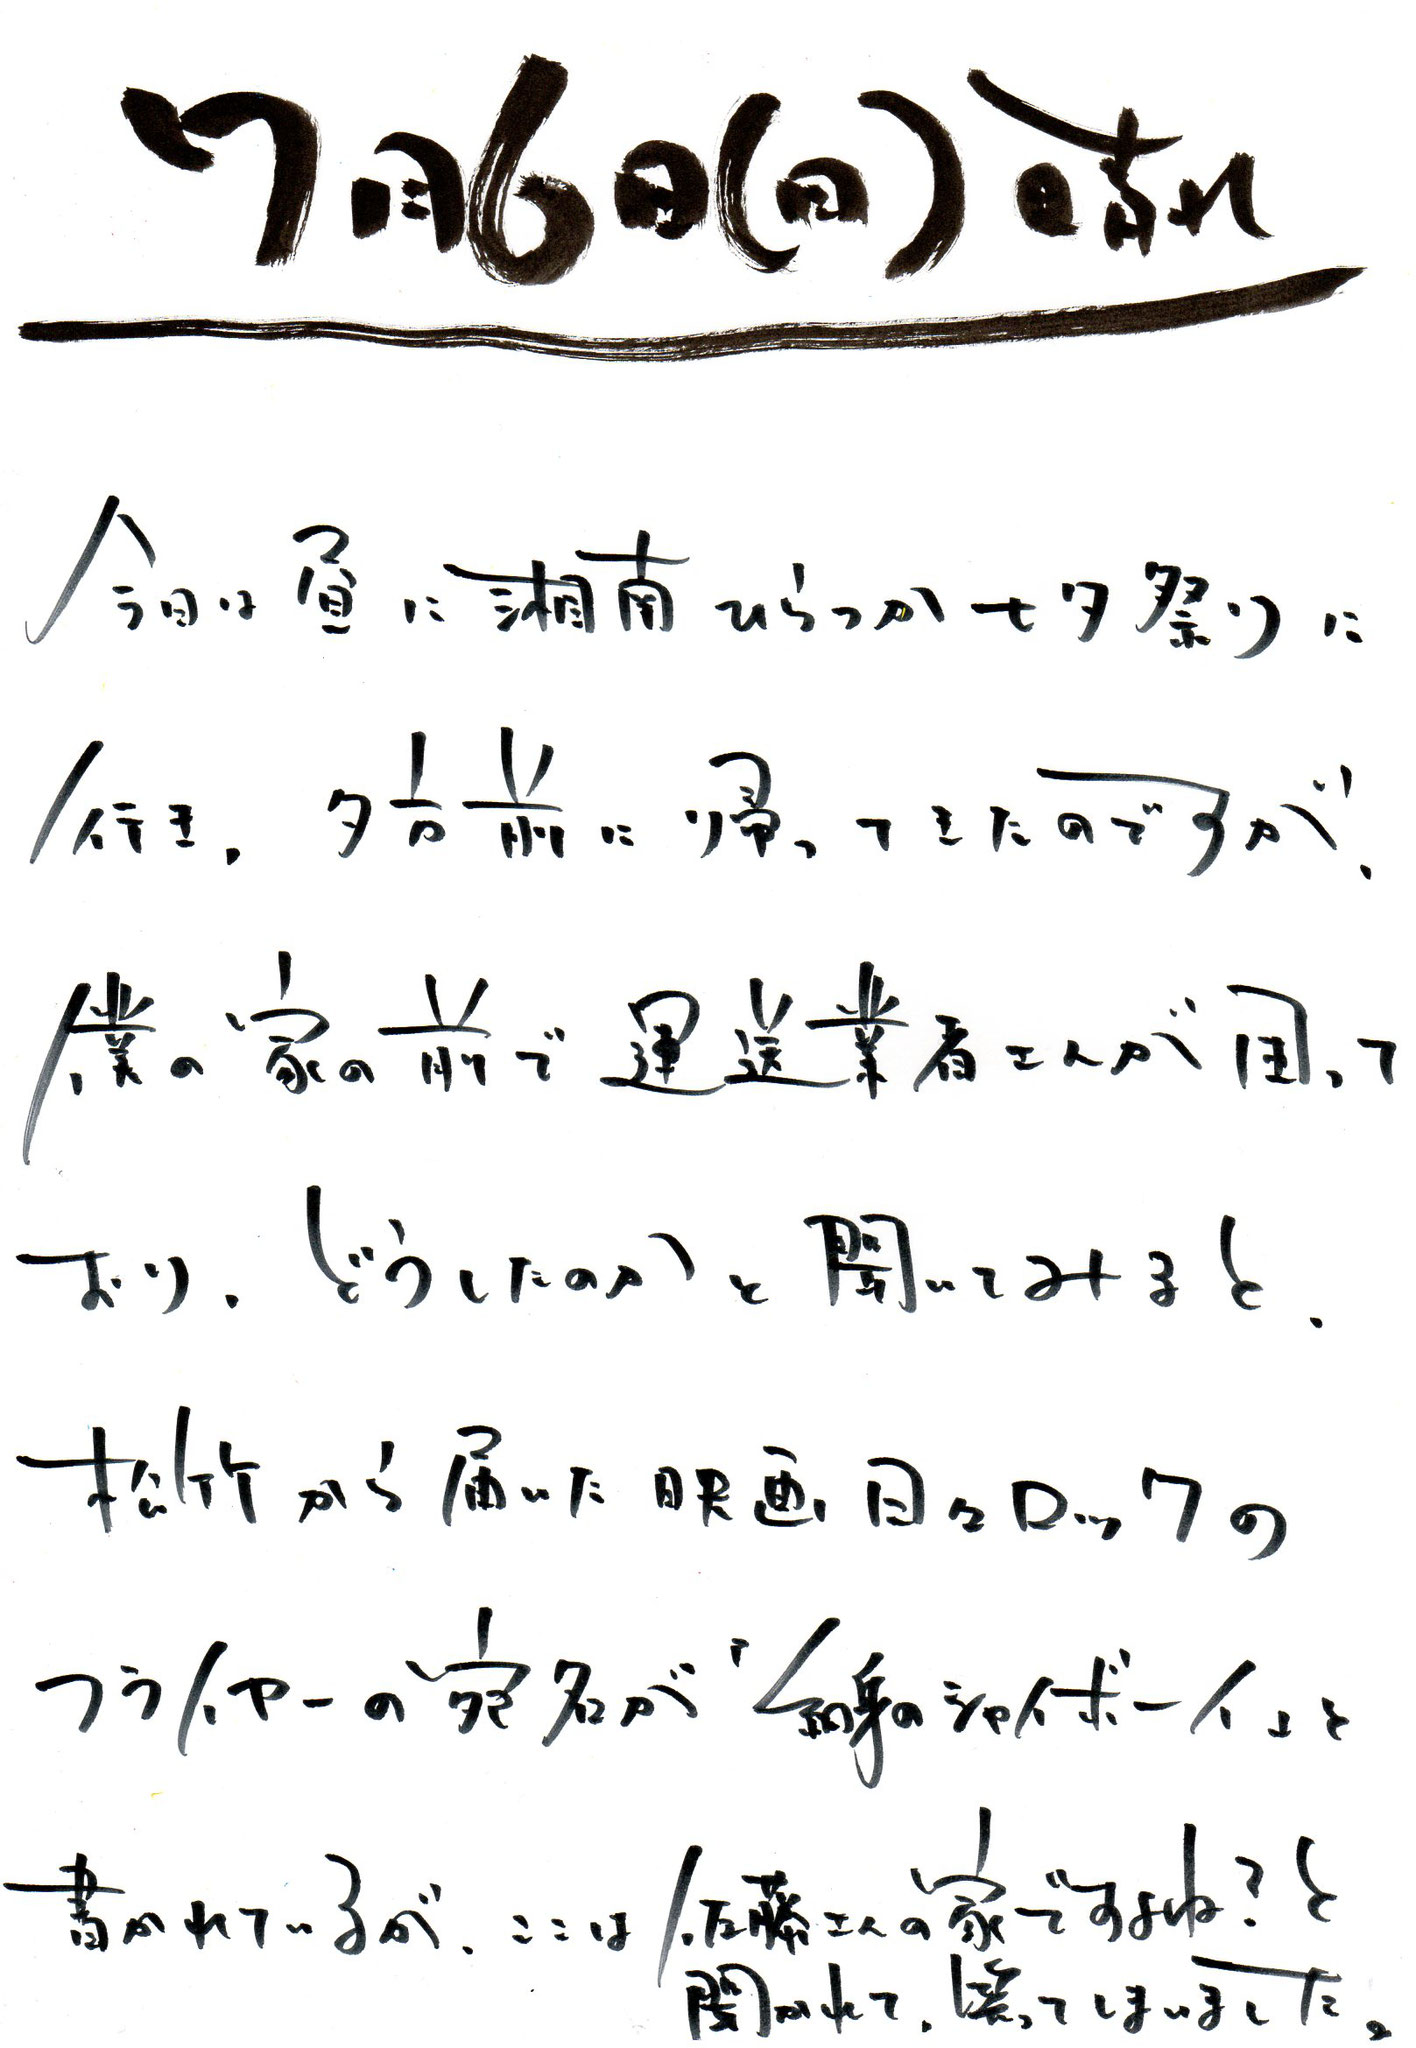 7月6日(日)晴れ
今日は昼に湘南ひらつか七夕祭りに
行き、夕方前に帰ってきたのですが、
僕の家の前で運送業者さんが困って
おり、どうしたのかと聞いてみると、
松竹から届いた映画、日々ロックの
フライヤーの宛名が「全身のシャイボーイ」と
書かれているが、ここは佐藤さんの家ですよね?と
聞かれて、笑ってしまいました。